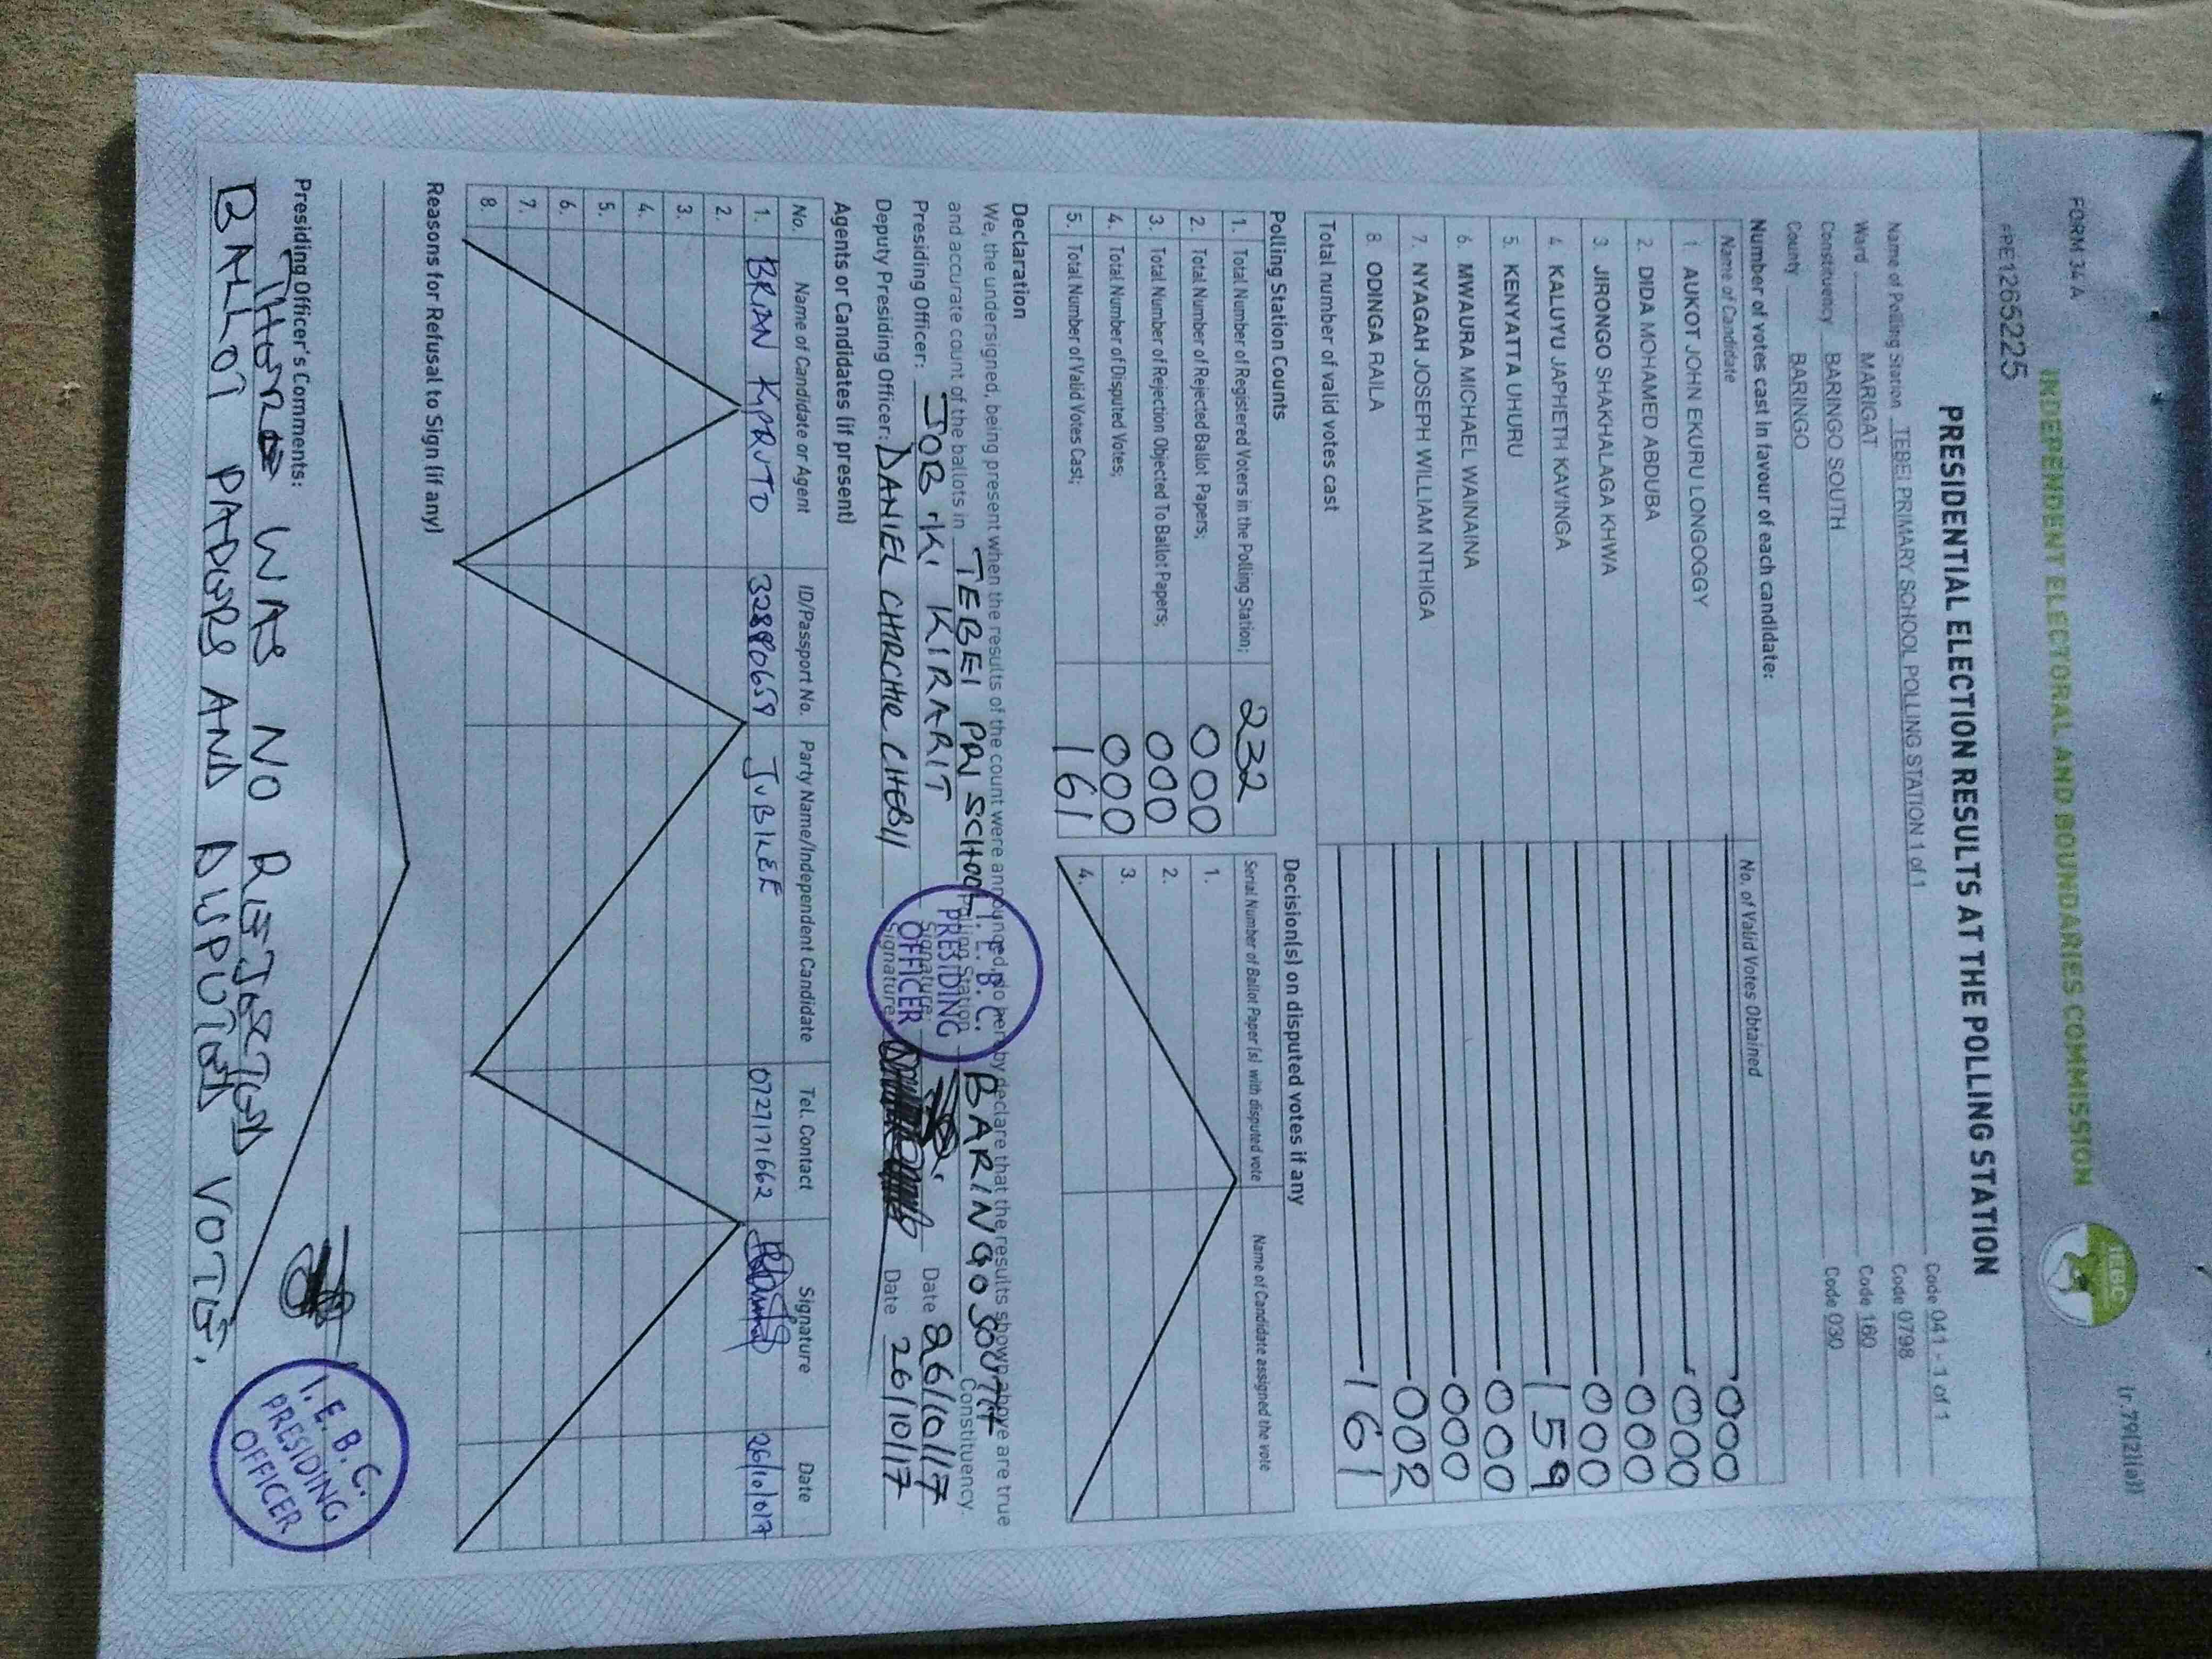 (r.79(2)(a))
FORM 34A
INDEPENDENT ELECTORAL AND BOUNDARIES COMMISSION
IEBC
PRE1265225
PRESIDENTIAL ELECTION RESULTS AT THE POLLING STATION
Name of Polling Station TEBEI PRIMARY SCHOOL POLLING STATION 1 of 1 Code 041 - 1 of 1
Ward MARIGAT Code 0798
Constituency BARINGO SOUTH Code 160
County BARINGO Code 030
Number of votes cast in favour of each candidate:
Name of Candidate No. of Valid Votes Obtained
1 AUKOT JOHN EKURU LONGOGGY 000
2. DIDA MOHAMED ABDUBA 000
3. JIRONGO SHAKHALAGA KHWA 000
4. KALUYU JAPHETH KAVINGA 000
5. KENYATTA UHURU 159
6. MWAURA MICHAEL WAINAINA 000
7. NYAGAH JOSEPH WILLIAM NTHIGA 000
8. ODINGA RAILA 002
Total number of valid votes cast 161
Polling Station Counts
1. Total Number of Registered Voters in the Polling Station; 232
2. Total Number of Rejected Ballot Papers; 000
3. Total Number of Rejection Objected To Ballot Papers; 000
4. Total Number of Disputed Votes; 000
5. Total Number of Valid Votes Cast; 161
Decision(s) on disputed votes if any
Serial Number of Ballot Paper (s) with disputed vote Name of Candidate assigned the vote
1.
2.
3.
4.
Declaration
We, the undersigned, being present when the results of the count were announced, do hereby declare that the results shown above are true
and accurate count of the ballots in TEBEI PRI SCHOOL Polling Station BARINGO SOUTH Constituency.
Presiding Officer: JOB KI KIRARIT Signature: Date 26/10/17
Deputy Presiding Officer: DANIEL CHIRCHIR CHEBII Signature: Date 26/10/17
I. E. B. C.
PRESIDING
OFFICER
Agents or Candidates (if present)
No. Name of Candidate or Agent ID/Passport No. Party Name/Independent Candidate Tel. Contact Signature Date
1. BRIAN KIPRUTO JUBILEE 0727171662 26/10/017
2.
3.
4.
5.
6.
7.
8.
Reasons for Refusal to Sign (if any)
Presiding Officer's Comments:
THERE WAS NO REJECTED
BALLOT PAPERS AND DISPUTED VOTE.
I. E. B. C.
PRESIDING
OFFICER